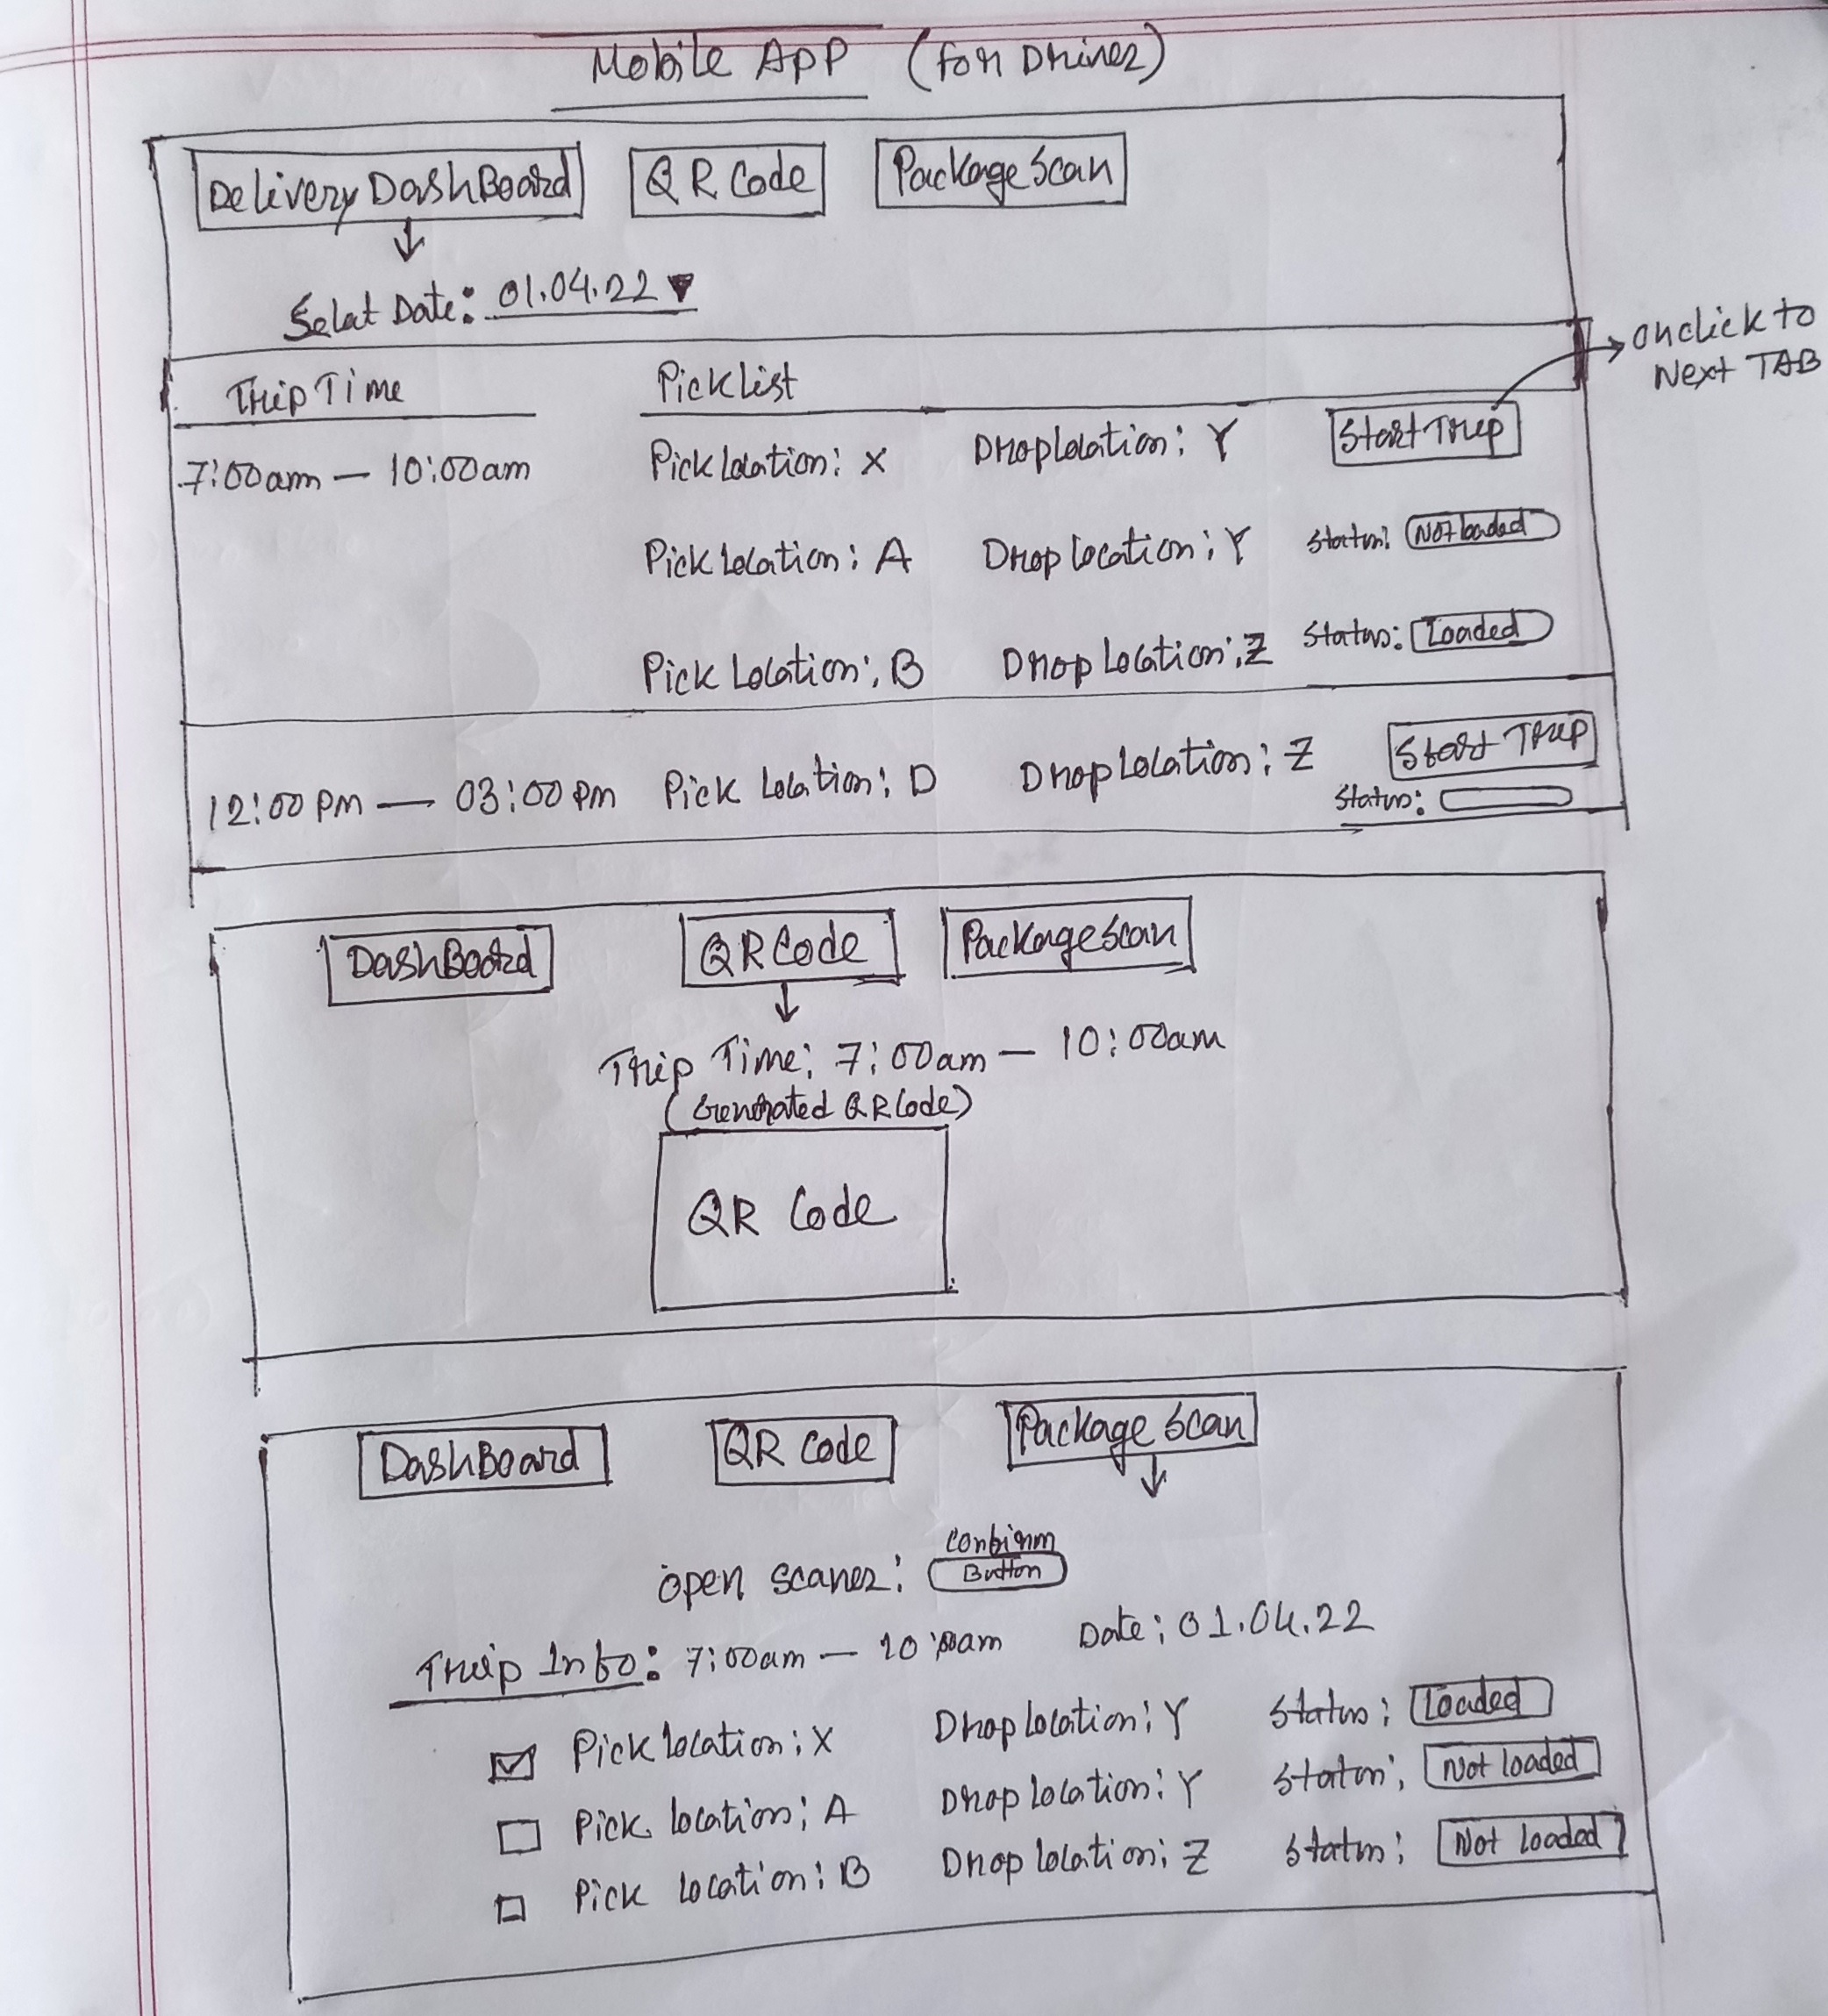 Mobile App (for Driver)
Delivery DashBoard QR Code Package Scan
Selat Date: 01.04.22
onclick to
Next TAB
Trip Time Pick List
7:00am — 10:00am Pick Location: X Drop Location: Y Start Trip
Pick Location: A Drop Location: Y Status: Not loaded
Pick Location: B Drop Location: Z Status: Loaded
12:00 pm — 03:00 pm Pick Location: D Drop Location: Z Start Trip
Status:
DashBoard QR Code Package Scan
Trip Time: 7:00am — 10:00am
(Generated QR Code)
QR Code
DashBoard QR Code Package Scan
Confirm
Open Scaner: Button
Trip Info: 7:00am — 10:00am Date: 01.04.22
Pick location: X Drop location: Y Status: Loaded
Pick location: A Drop location: Y Status: Not loaded
Pick location: B Drop location: Z Status: Not loaded